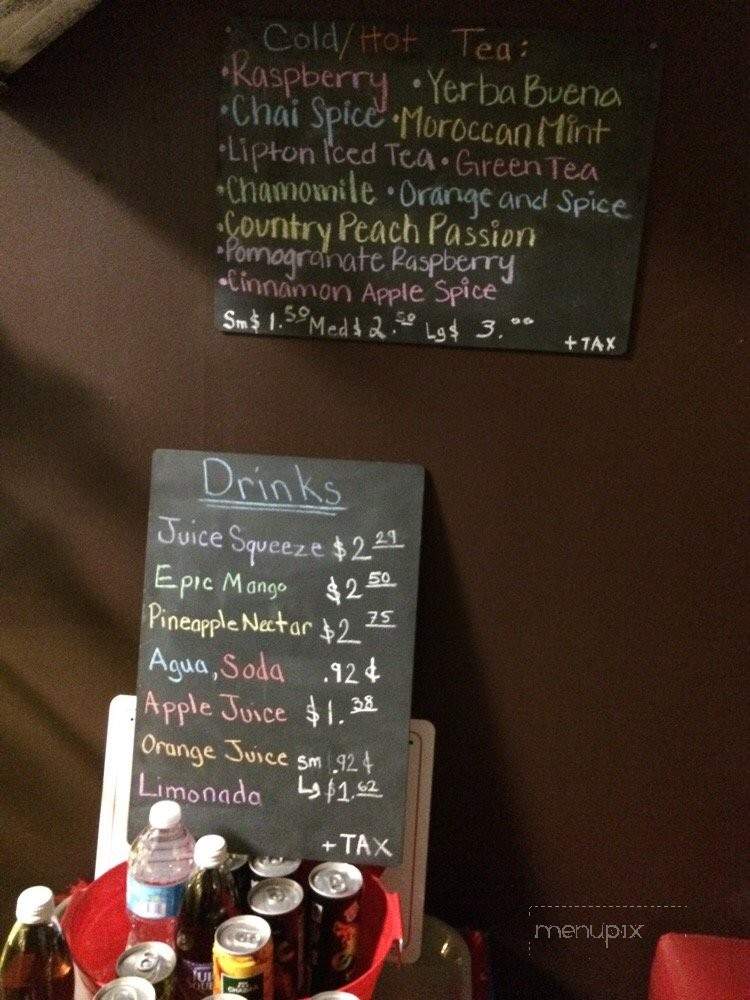 Cold/Hot Tea:
•Raspberry •Yerba Buena
•Chai Spice •Moroccan Mint
•Lipton Iced Tea •Green Tea
•Chamomile •Orange and Spice
•Country Peach Passion
•Pomogranate Raspberry
•Cinnamon Apple Spice
Sm$ 1.50 Med$ 2.50 Lg$ 3.00
+TAX
Drinks
Juice Squeeze $2 29
Epic Mango $2 50
Pineapple Nectar $2 75
Agua, Soda .92 ¢
Apple Juice $1.38
Orange Juice Sm .92 ¢
Limonada Lg $1.62
+TAX
menupix